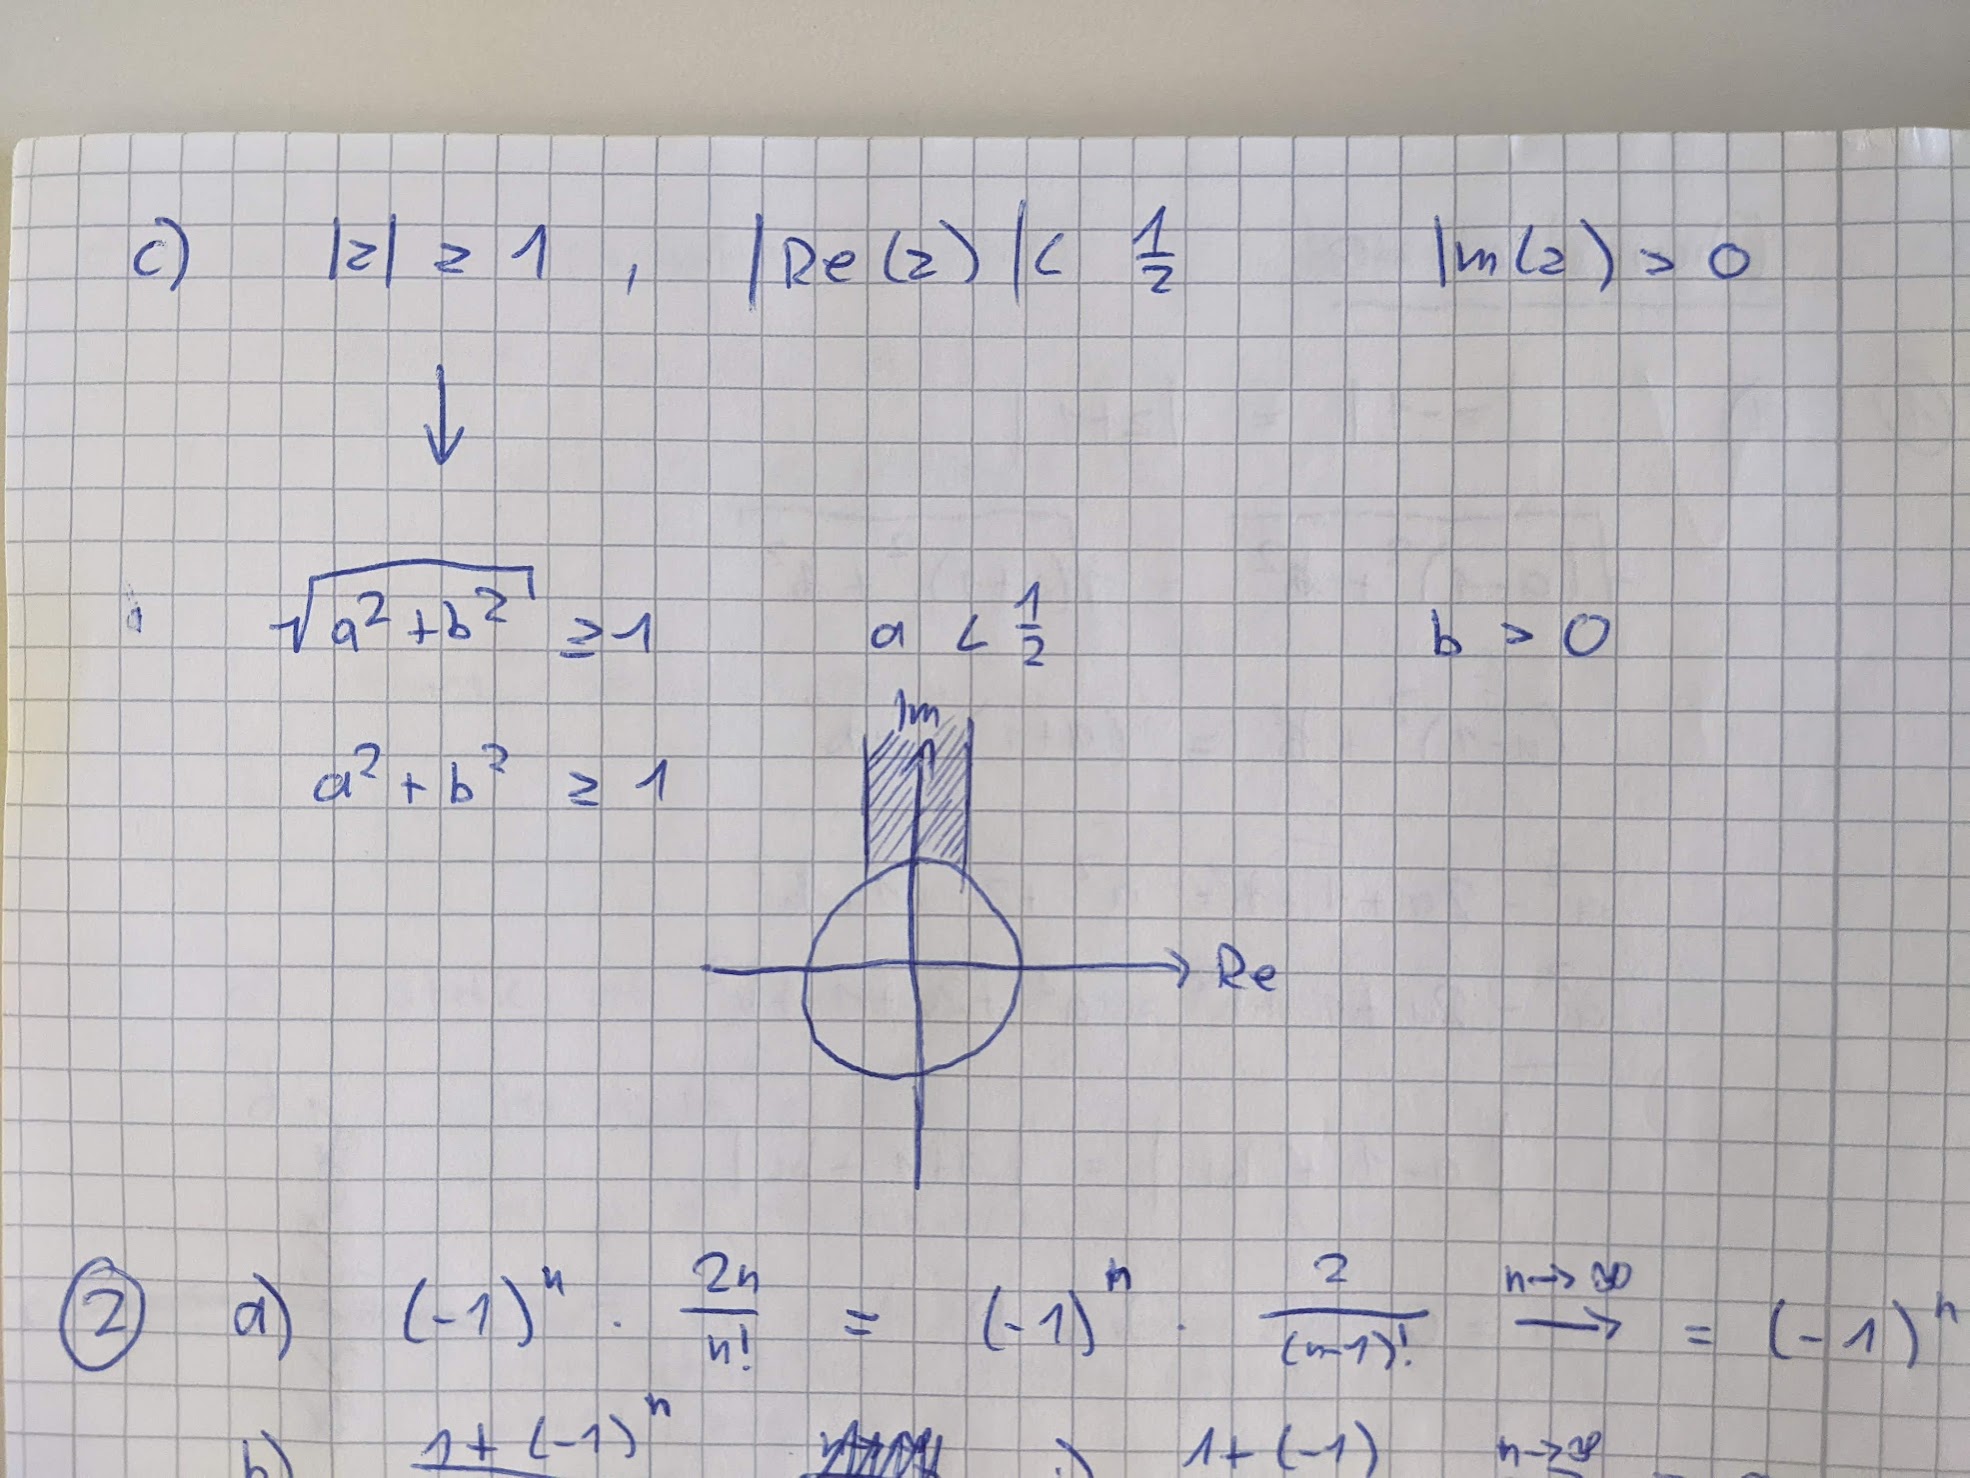 c) |z| ≥ 1 , |Re(z)| < 1/2 Im(z) > 0
↓
√(a² + b²) ≥ 1 a < 1/2 b > 0
Im
a² + b² ≥ 1
Re
② a) (-1)ⁿ · 2n/n! = (-1)ⁿ · 2/(n-1)! n→∞ ⟶ = (-1)ⁿ
b) 1 + (-1)ⁿ 1 + (-1) n→∞